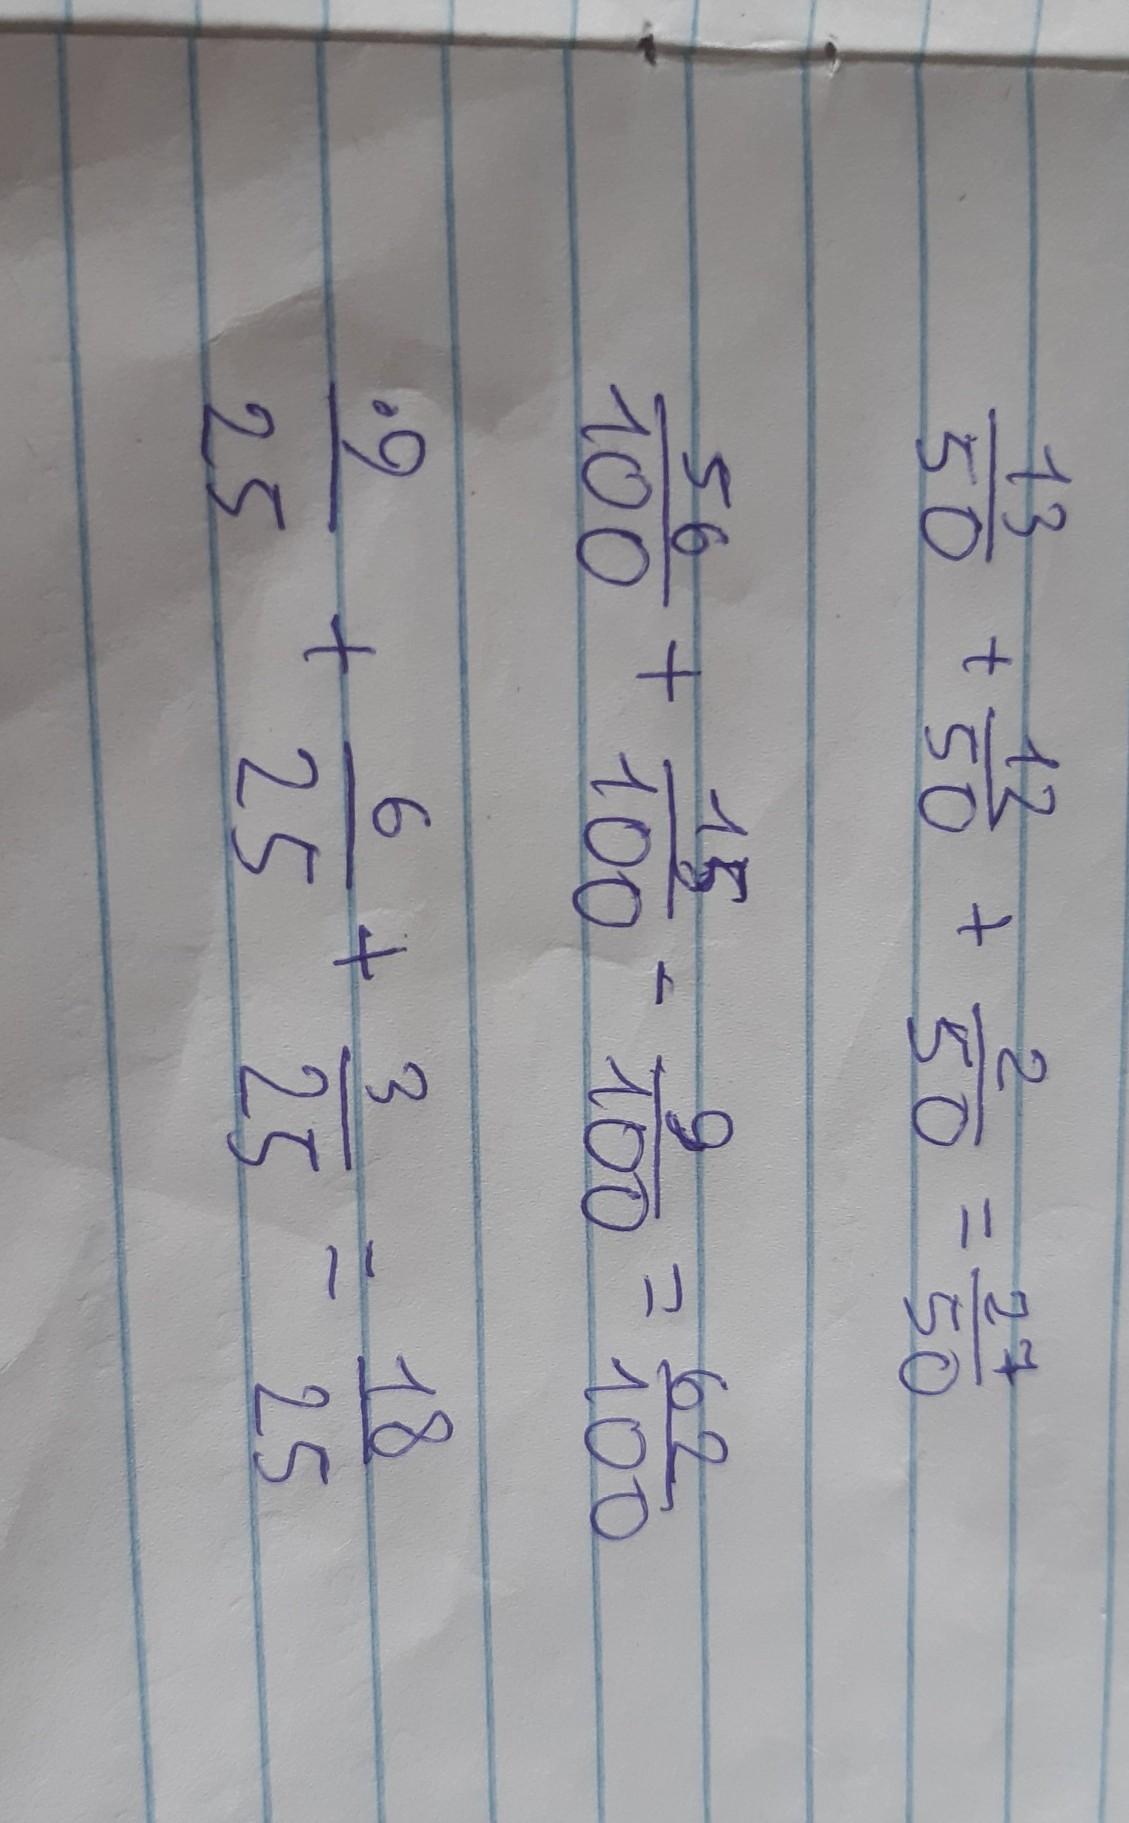 13/50 + 12/50 + 2/50 = 27/50
56/100 + 15/100 - 9/100 = 62/100
9/25 + 6/25 + 3/25 = 18/25